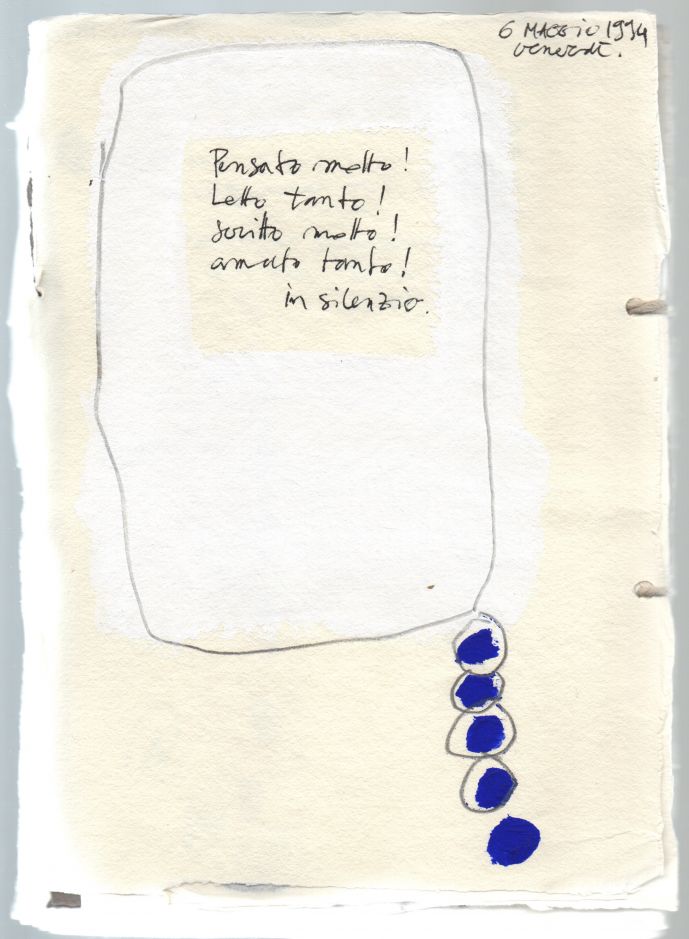 6 MAGGIO 1994
venerdì.
Pensato molto!
Letto tanto!
scritto molto!
amato tanto!
in silenzio.